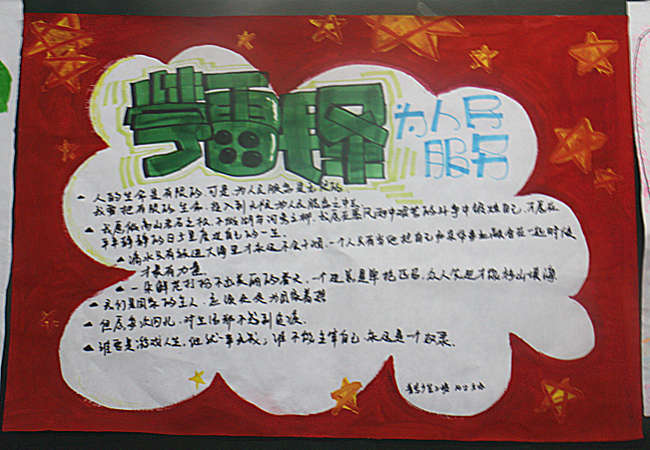 学雷锋
为人民
服务
人的生命是有限的,可是,为人民服务是无限的,
我要把有限的生命,投入到无限为人民服务之中去
我愿做高山岩石之松,不做湖岸河旁之柳,我愿在暴风雨中艰苦的斗争中锻炼自己,不愿在
平平静静的日子里度过自己的一生。
滴水只有放进大海里才永远不会干涸,一个人只有当他把自己和集体事业融合在一起时候
才最有力量
一朵鲜花打扮不出美丽的春天,一个人先进总是单枪匹马,众人先进才能移山填海
我们是国家的主人,应该处处为国家着想
但愿每次回忆,对生活都不感到负疚
谁要是游戏人生,他就一事无成;谁不能主宰自己,永远是一个奴隶。